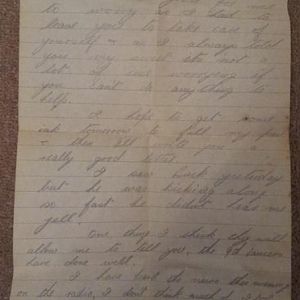 to worry as I had to
leave you to take care of
yourself & as I always told
you my sweet its not a
lot of use worrying if
you can't do anything to
help.
I hope to get some
ink tomorrow to fill my pen
& then I'll write you a
really good letter.
I saw Jack yesterday
but he was kicking along
so fast he didn't hear me
yell.
One thing I think they will
allow me to tell you, the
have done well.
I have the news this morning
on the radio, I don't